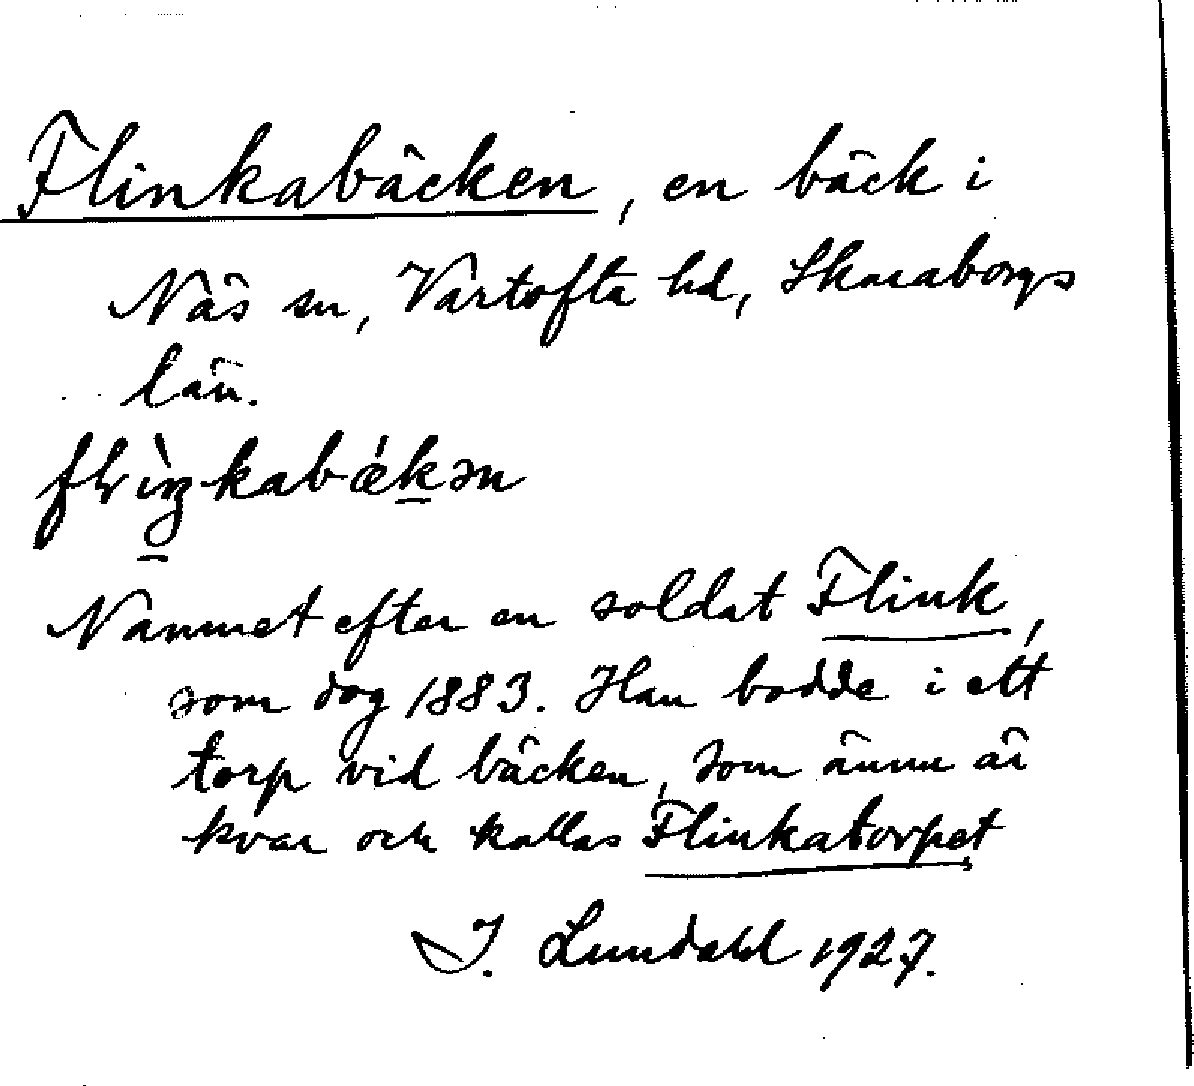 Flinkabäcken, en bäck i
Näs sn, Vartofta hd, Skaraborgs
län.
flìŋkabǽkən
Namnet efter en soldat Flink,
som dog 1883. Han bodde i ett
torp vid bäcken, som ännu är
kvar och kallas Flinkatorpet
I. Lundahl 1927.